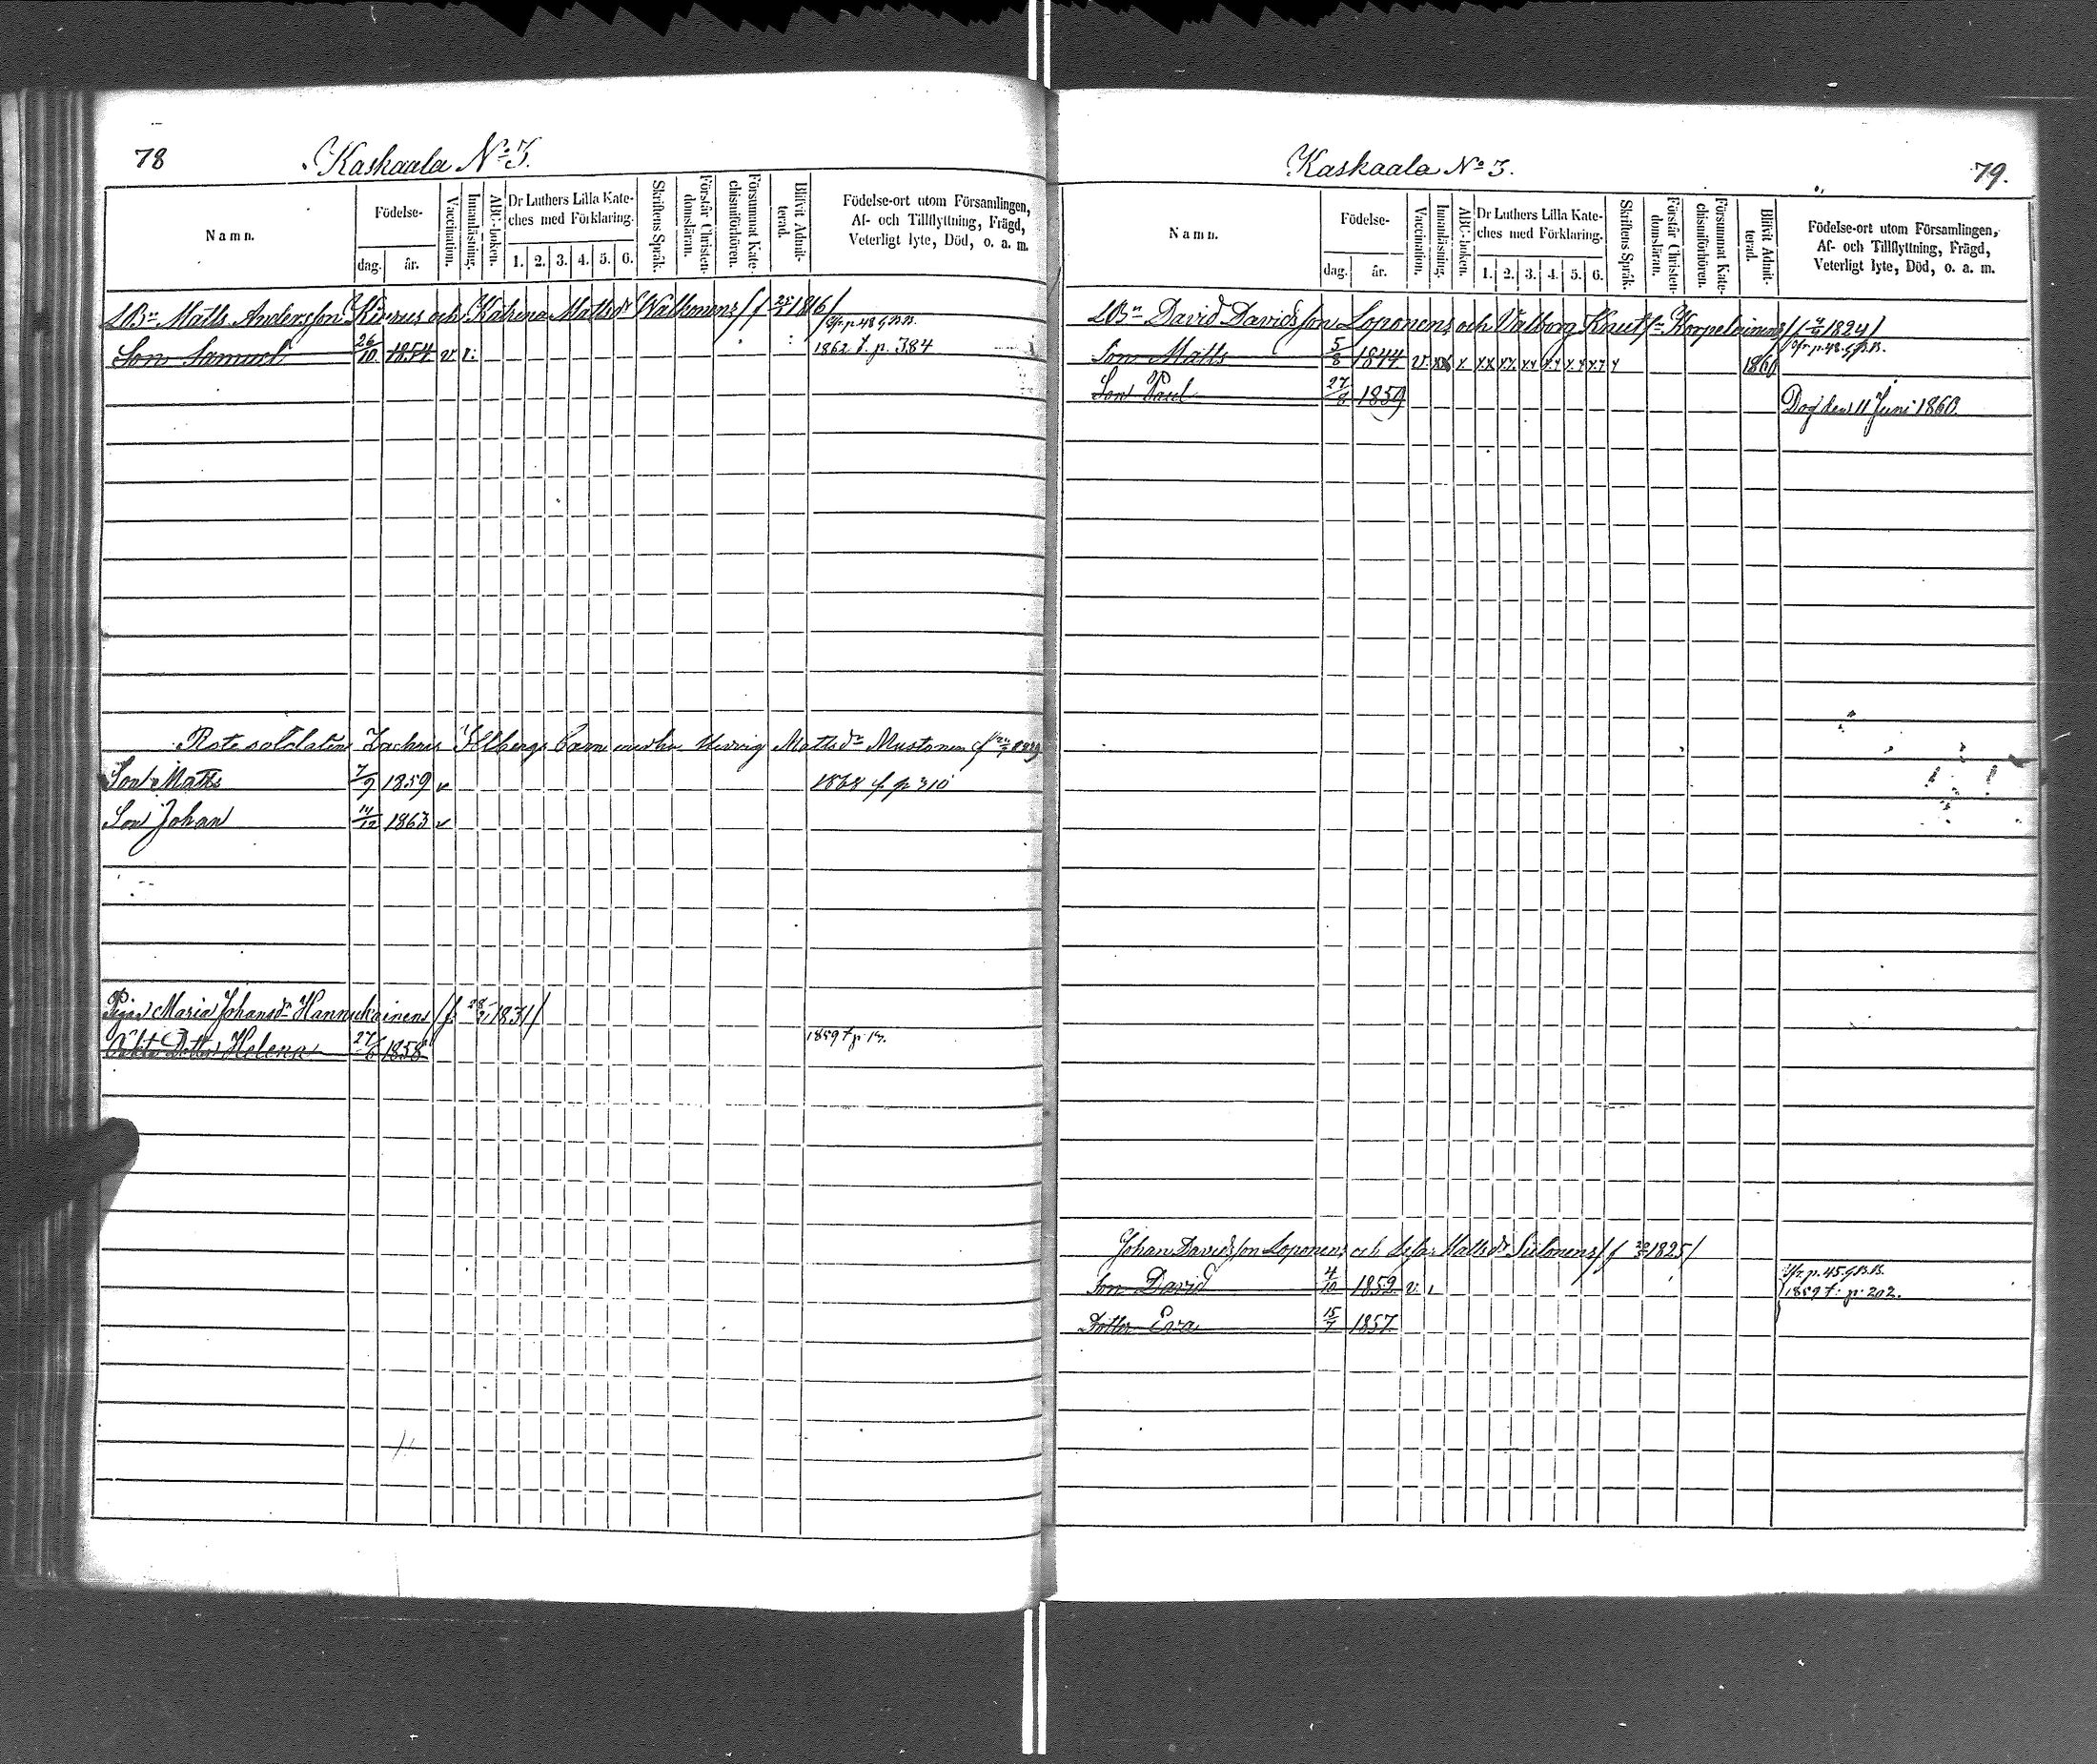 78
Kaskaala No 3.
Namn.
Födelse-
dag.
år.
Vaccination.
Innanläsning.
ABC-boken.
Dr Luthers Lilla Kate-
ches med Förklaring.
1. 2. 3. 4. 5. 6.
Skriftens Språk.
Förstår Christen-
domsläran.
Försummat Kate-
chismiförhören.
Blifvit Admit-
terad.
Födelse-ort utom Församlingen,
Af- och Tillflyttning, Frägd,
Veterligt lyte, Död, o. a. m.
Matts Andersson och Katrina Mattsdr Walkonens 1816/
p. 48 g.B.B.
Son Samuel 26/10 1854 v. 1862 t. p. 384
Rotesoldaten Zachris barn med hu Hedvig Mattsdr Mustonen
Son Matts 7/9 1859 v p 310
Son Johan 14/12 1863 v
Pigan Maria Johansdr /f. 1831/
Oäkta Dotter Helena 27/6 1858 1859 t p.
Kaskaala No 3.
79.
Namn.
Födelse-
dag.
år.
Vaccination.
Innanläsning.
ABC-boken.
Dr Luthers Lilla Kate-
ches med Förklaring.
1. 2. 3. 4. 5. 6.
Skriftens Språk.
Förstår Christen-
domsläran.
Försummat Kate-
chismiförhören.
Blifvit Admit-
terad.
Födelse-ort utom Församlingen,
Af- och Tillflyttning, Frägd,
Veterligt lyte, Död, o. a. m.
David Davidsson Loponens och Valborg Korpelainens 1824/
p. 48 g.B.B.
Son Matts 5/8 1844 v. 1860
Son Paul 27/8 1859 Dog den 11 Juni 1860.
Johan Davidsson Loponens och Mattsdr Siilonens /f 1825/
p. 45 g.B.B.
Son David 4/10 1852 v. 1859 t. p. 202.
Dotter Eva 15/7 1857